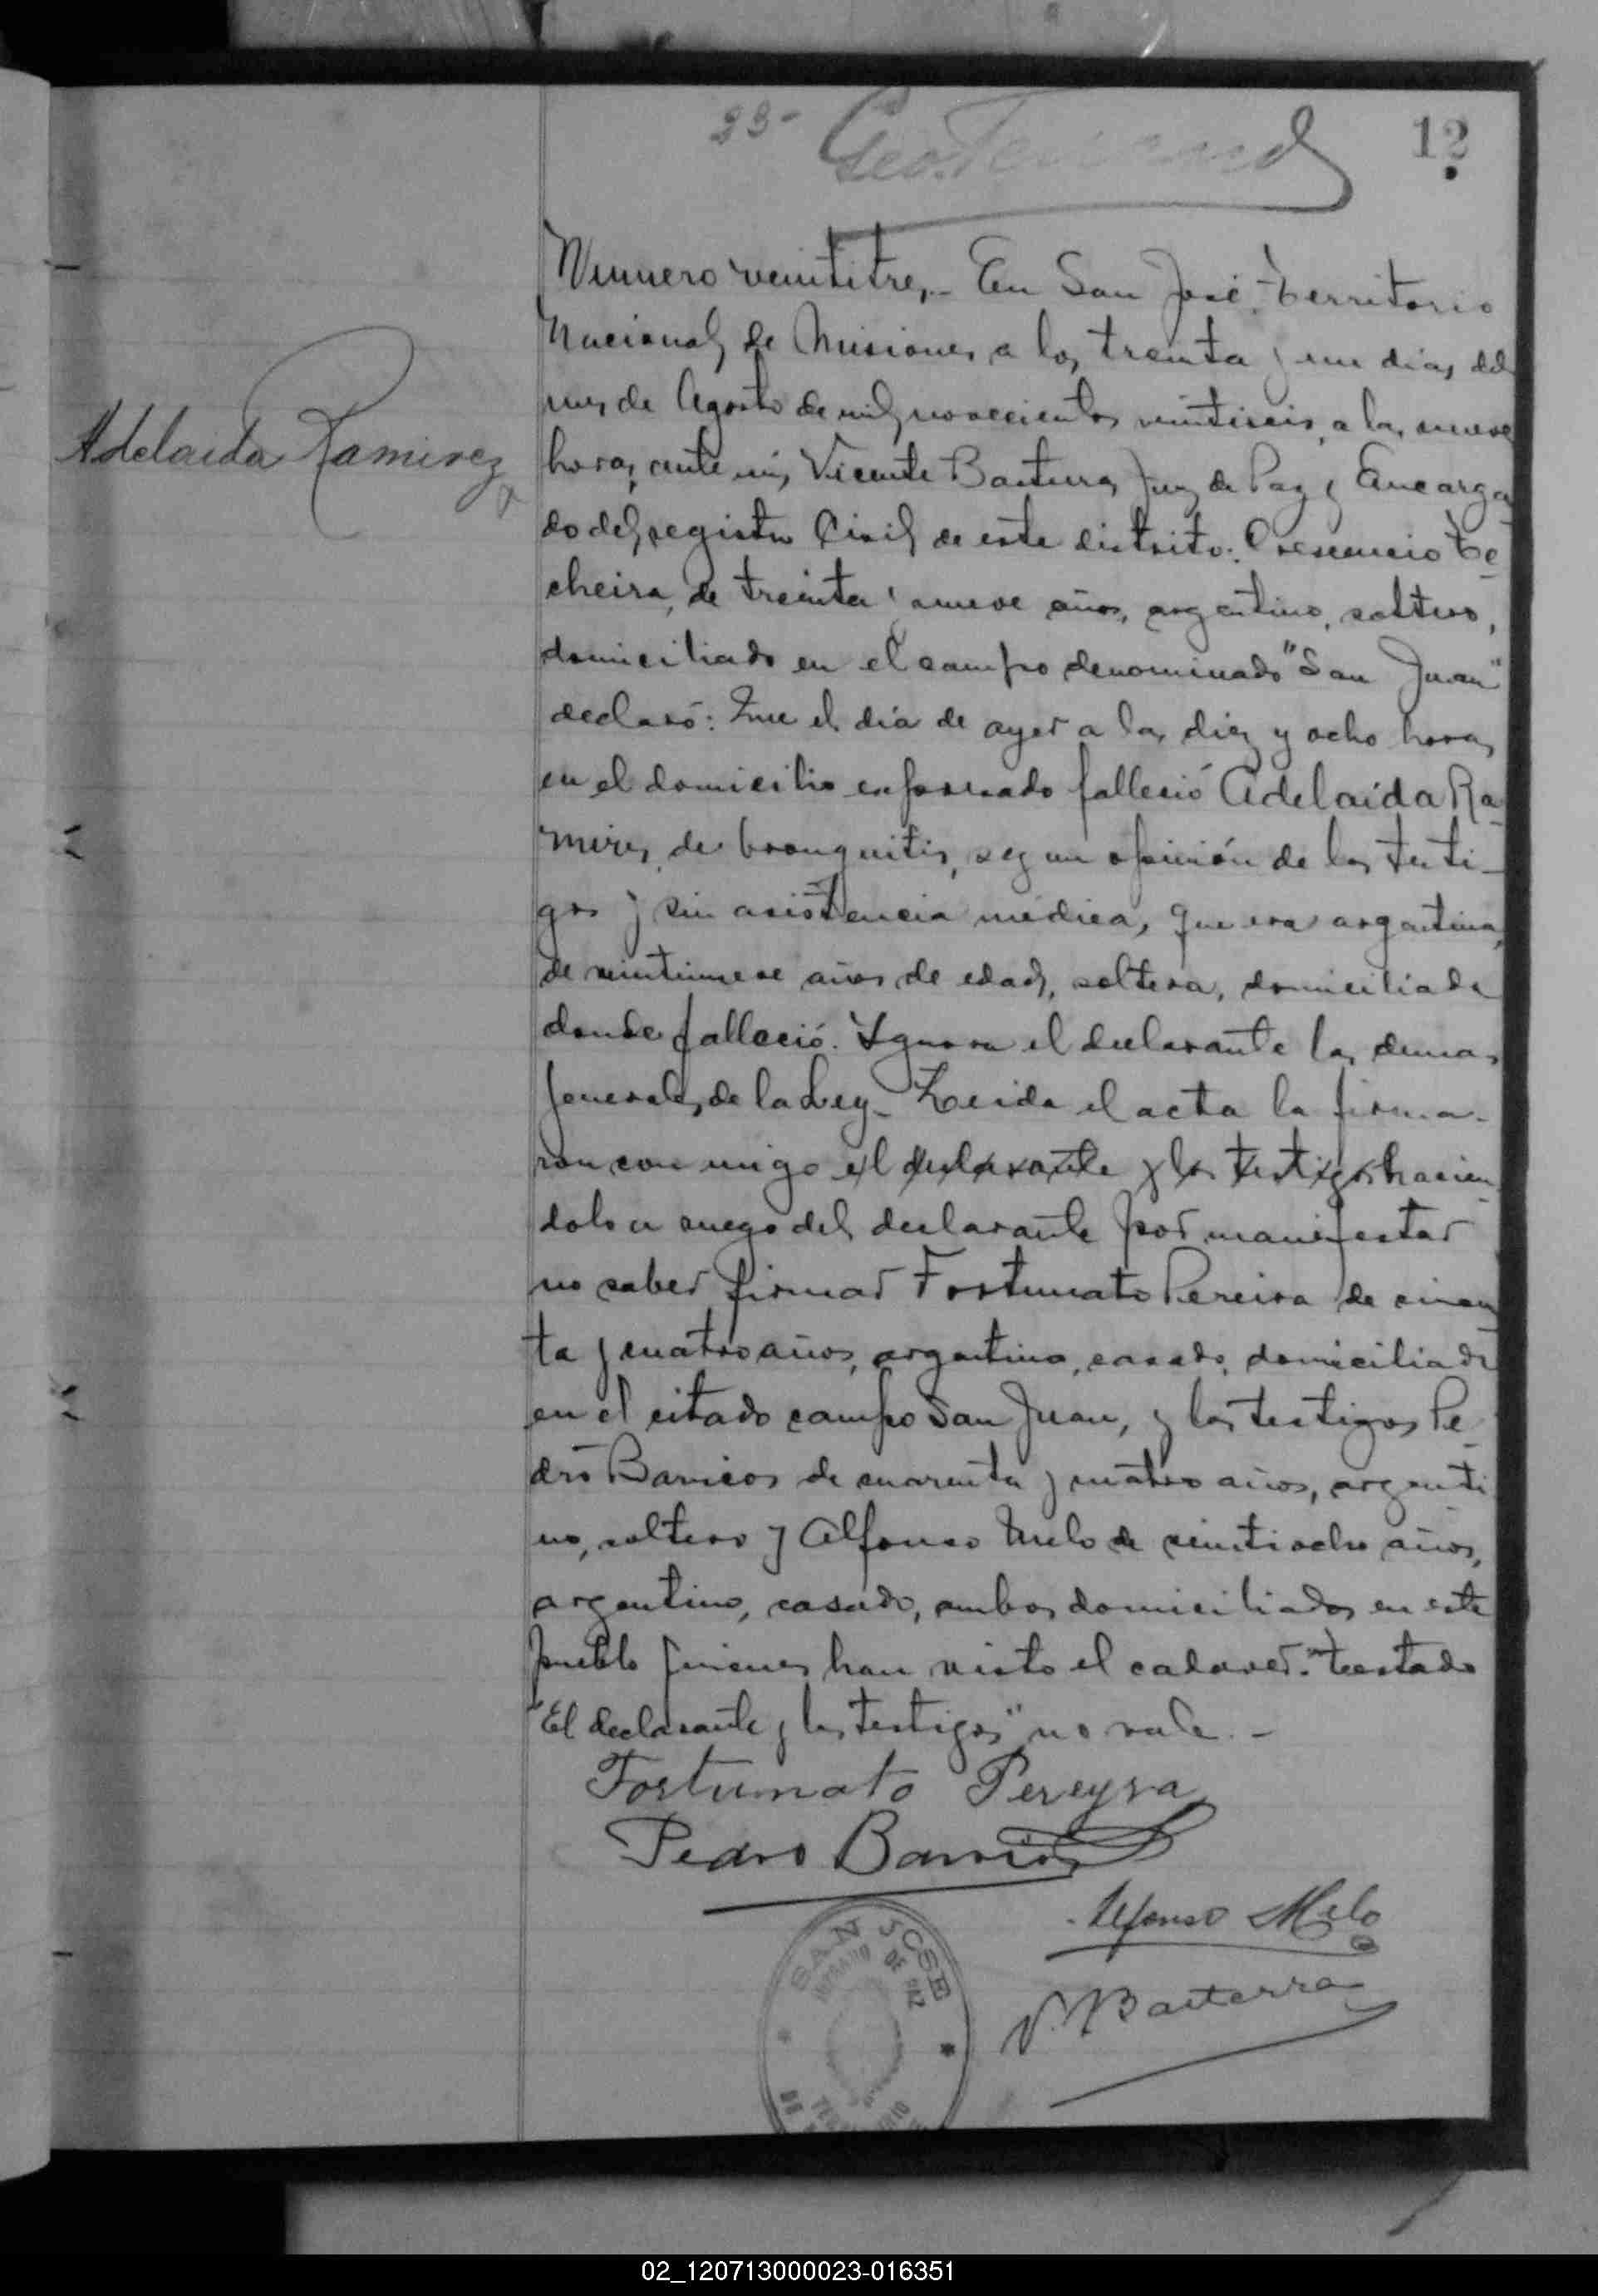 23-
12
Numero veintitres,- En San José, territorio
Nacional de Misiones a los treinta y un dias del
mes de Agosto de mil novecientos veintiseis, a las nueve
Adelaida Ramirez
horas, ante mi, Vicente Basterra, Juez de Paz y Encarga
do del registro Civil de este distrito: Cresencio Te-
cheira, de treinta y nueve años, argentino, soltero,
domiciliado en el campo denominado "San Juan"
declaró: Que el dia de ayer a las diez y ocho horas
en el domicilio expresado falleció Adelaida Ra-
mires, de bronquitis, segun opinión de los testi-
gos y sin asistencia médica, que era argentina,
de veintinueve años de edad, soltera, domiciliada
donde falleció. Ignora el declarante las demas
jenerales de la Ley- Leida el acta la firma-
ron con migo el declarante y los testigos hacien-
dolo a ruego del declarante por manifestar
no saber firmar Fortunato Pereira de cincuen
ta y cuatro años, argentino, casado, domiciliado
en el citado campo San Juan, y los testigos Pe-
dro Barrios de cuarenta y cuatro años, argenti
no, soltero y Alfonso Melo de veintiocho años,
argentino, casado, ambos domiciliados en este
pueblo quienes han visto el cadaver. Testado
"El declarante y los testigos" no vale.-
Fortunato Pereyra
Pedro Barrios
Alfonso Melo
V. Basterra
SAN JOSE
JUZGADO DE PAZ
TERRITORIO
DE
02_120713000023-016351